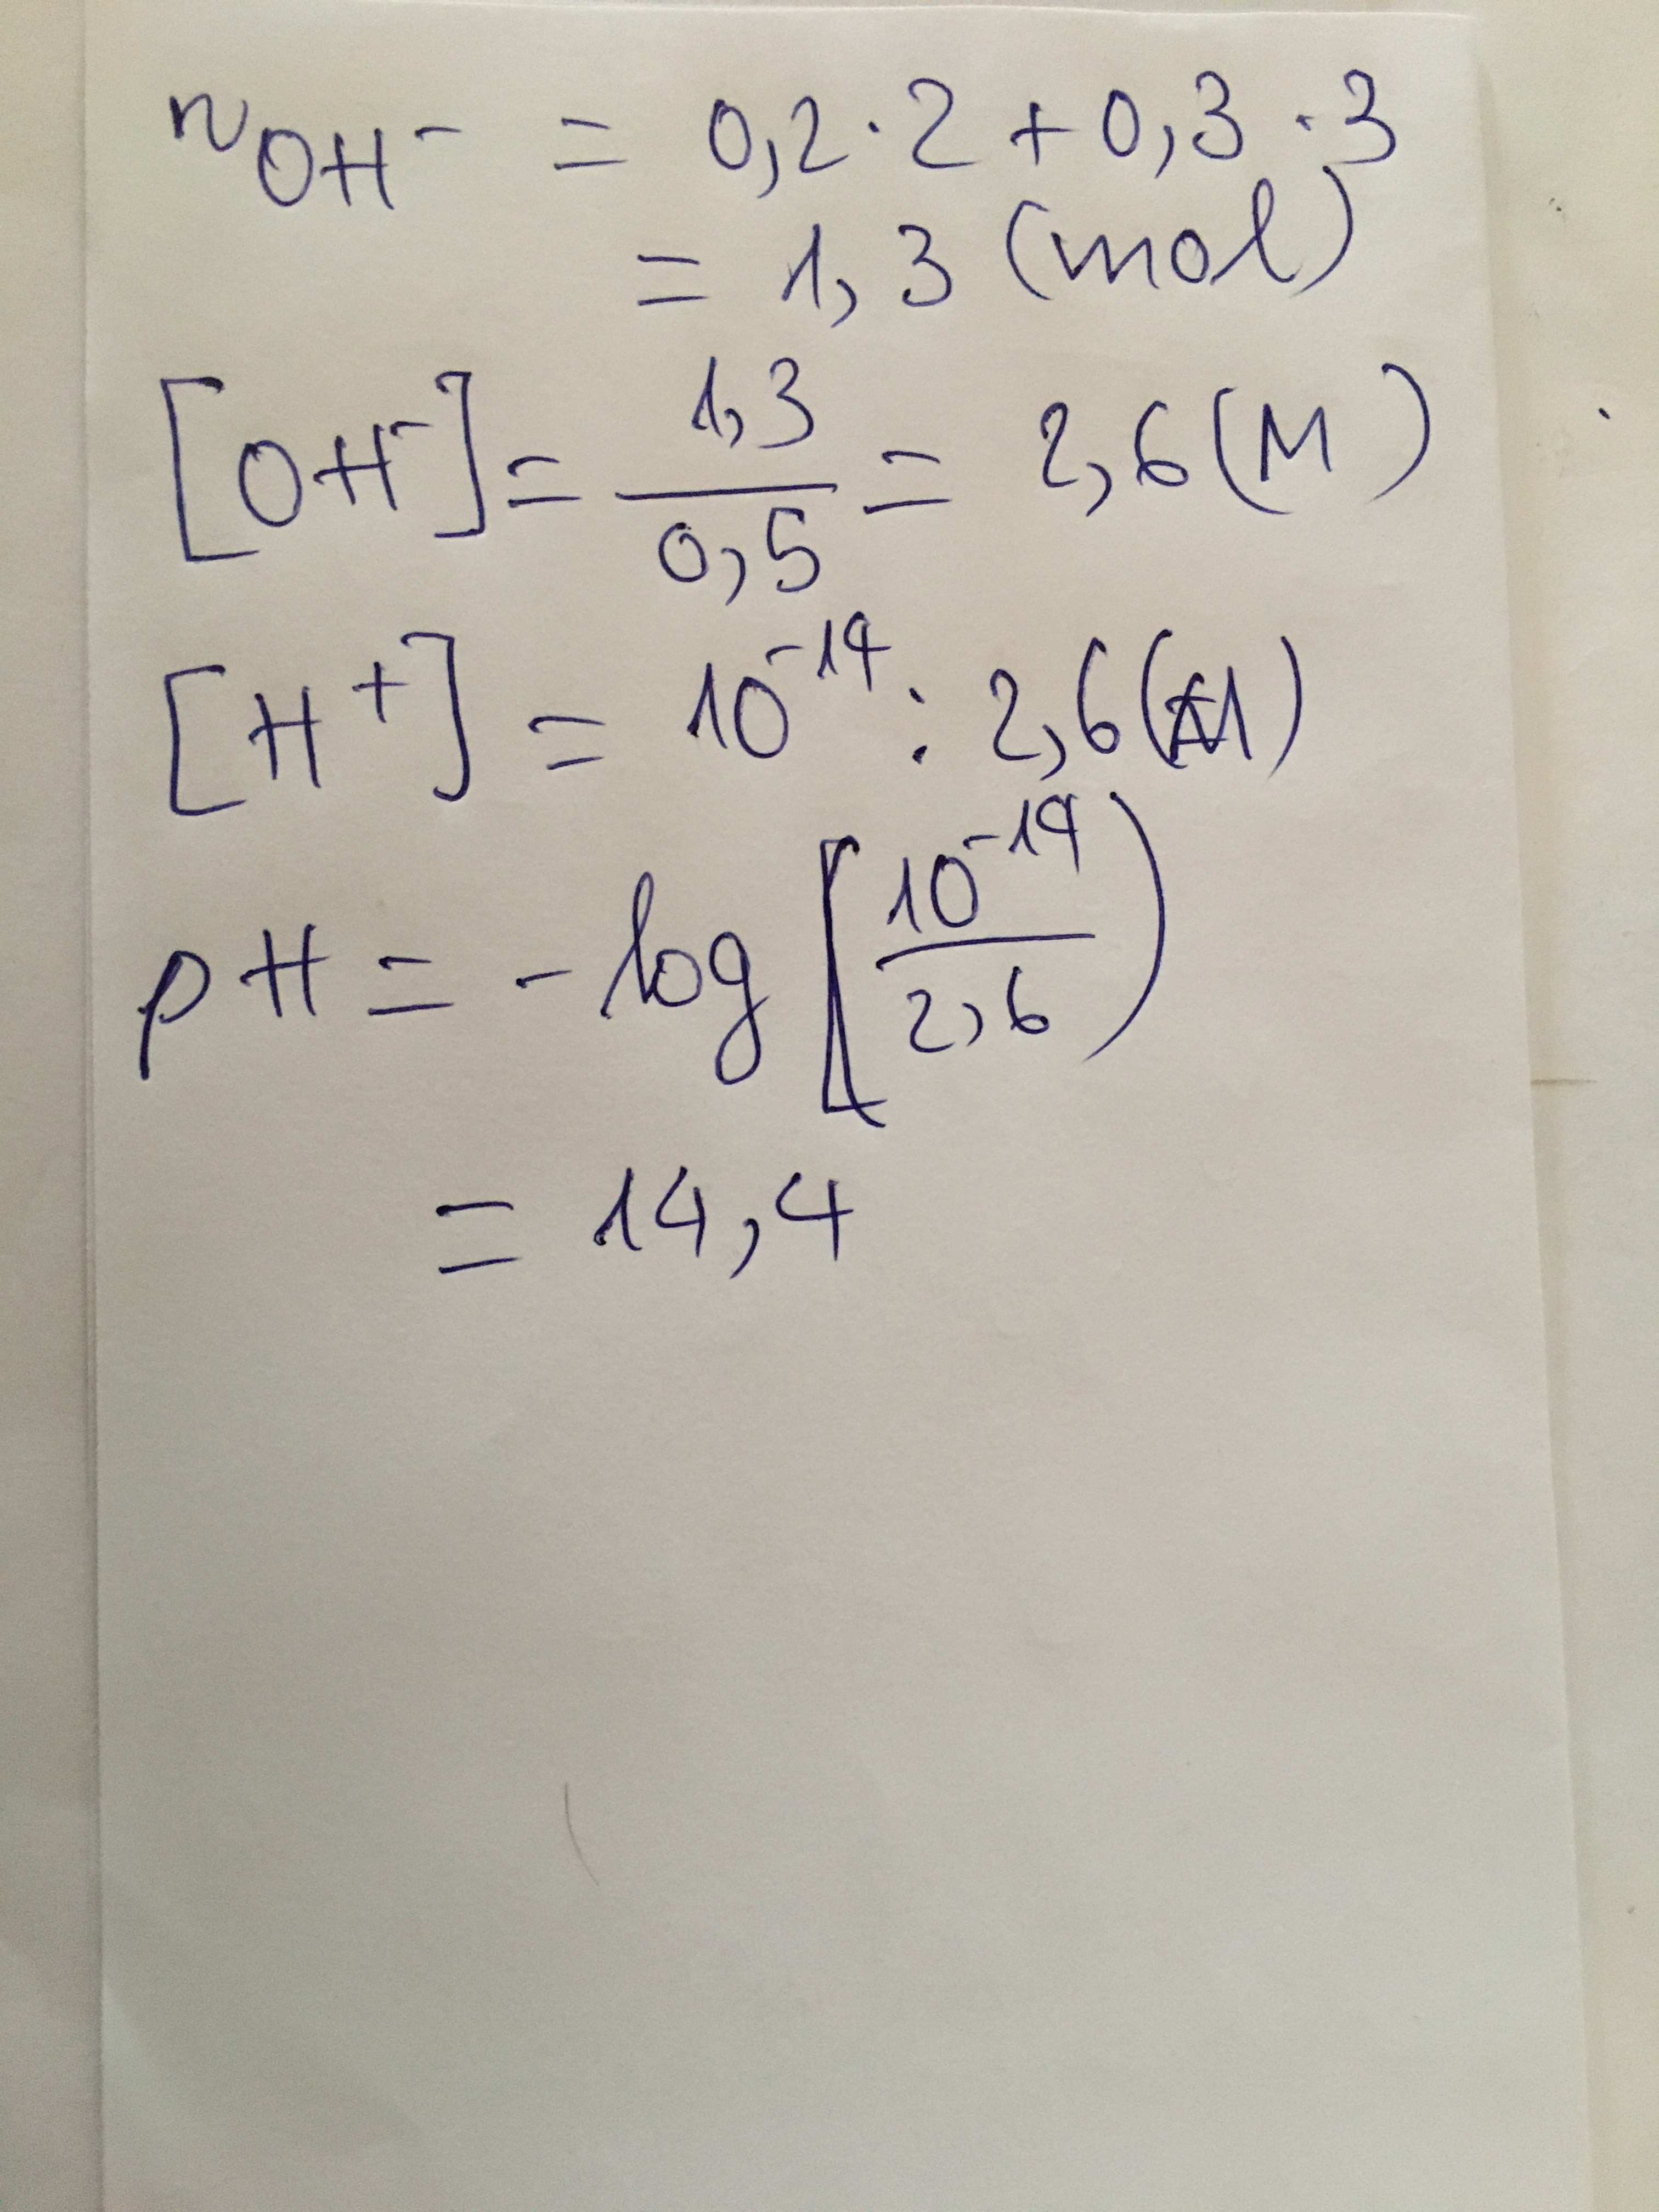 n OH⁻ = 0,2 · 2 + 0,3 · 3
= 1,3 (mol)
[OH⁻] = 1,3 / 0,5 = 2,6 (M)
[H⁺] = 10⁻¹⁴ : 2,6 (M)
pH = - log [10⁻¹⁴ / 2,6)
= 14,4